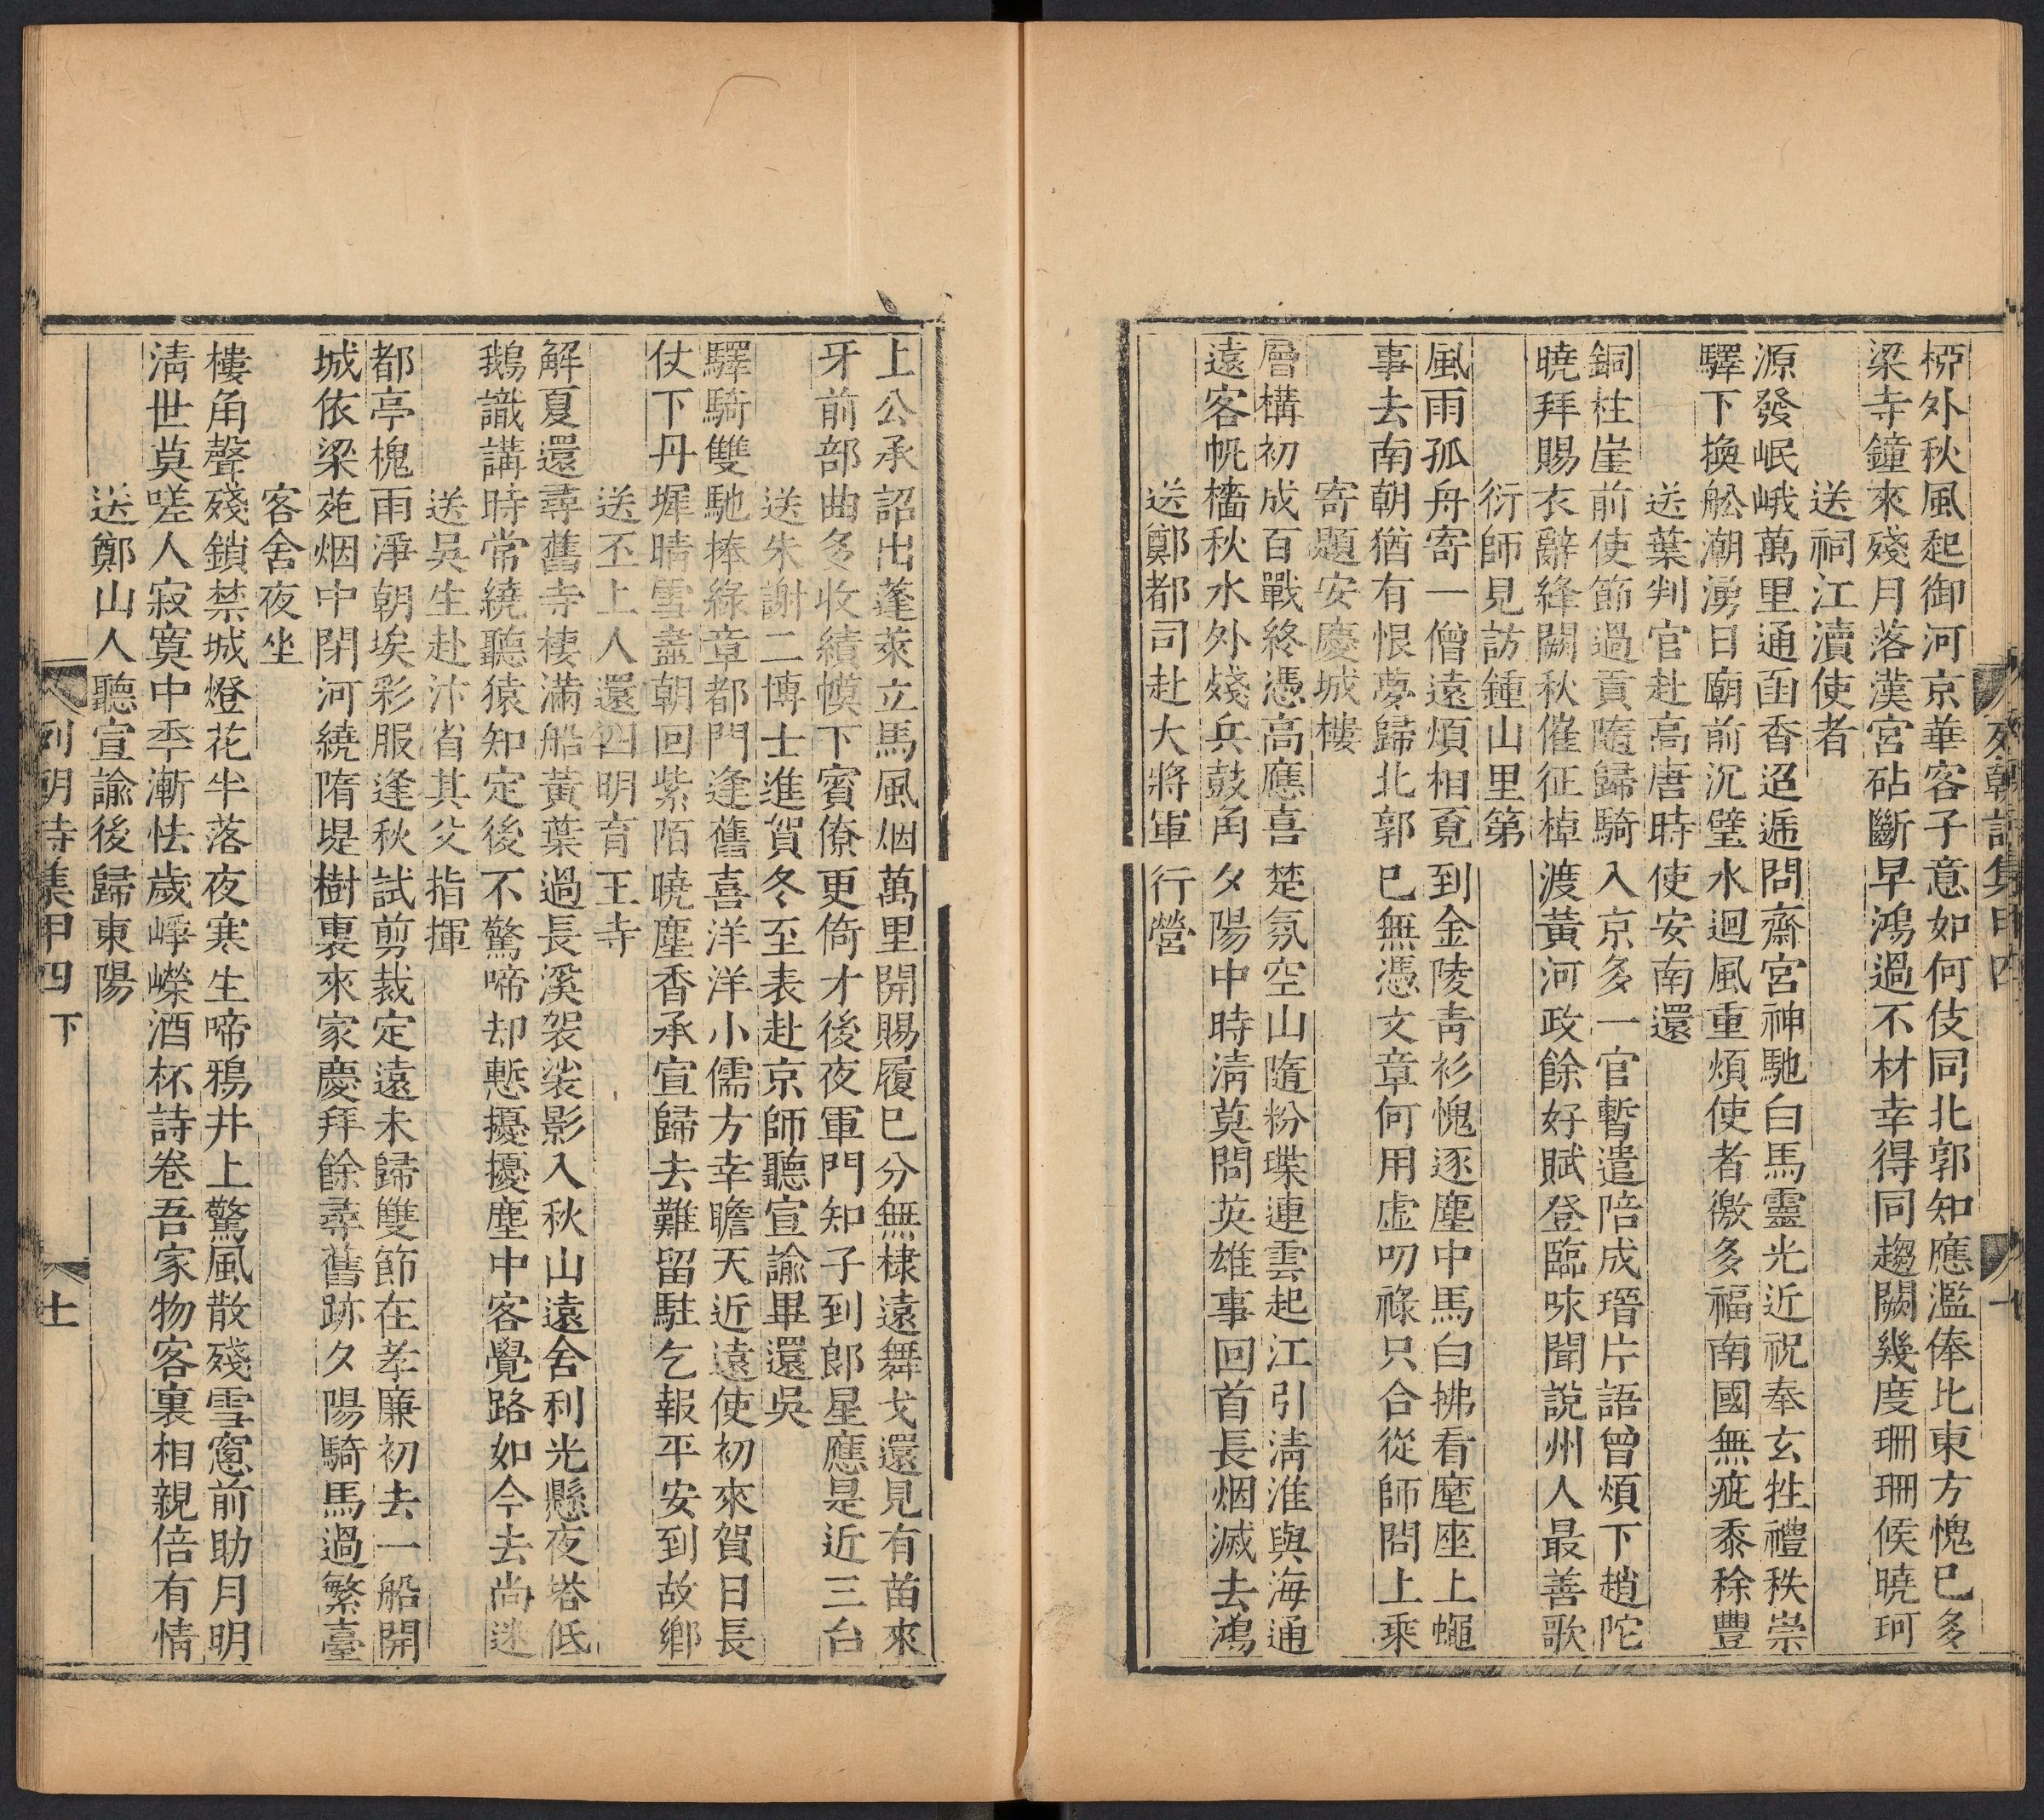 椏外秋風起御河京華客子意如何伎同北郭知應濫俸比東方愧已多
梁寺鐘來殘月落漢宮砧斷早鴻過不材幸得同趨闕幾度珊珊候曉珂
送祠江瀆使者
源發岷峨萬里通函香迢遞問齋宮神馳白馬靈光近祝奉玄牲禮秩崇
驛下換舩潮湧日廟前沉璧水迴風重煩使者徼多福南國無疵黍稌豐
送葉判官赴高唐時使安南還
銅柱崖前使節過貢隨歸騎入京多一官暫遣陪成瑨片語曾煩下趙陀
曉拜賜衣辭絳闕秋催征棹渡黃河政餘好賦登臨咏聞說州人最善歌
衍師見訪鍾山里第
風雨孤舟寄一僧遠煩相覔到金陵青衫愧逐塵中馬白拂看麾座上蠅
事去南朝猶有恨夢歸北郭巳無憑文章何用虛叨祿只合從師問上乘
寄題安慶城樓
層構初成百戰終憑高應喜楚氛空山隨粉堞連雲起江引淸淮與海通
遠客帆檣秋水外殘兵鼓角夕陽中時淸莫問英雄事回首長烟滅去鴻
送鄭都司赴大將軍行營
上公承詔出蓬萊立馬風烟萬里開賜履已分無棣遠舞戈還見有苗來
牙前部曲多收績幙下賓僚更倚才後夜軍門知子到郎星應是近三台
送朱謝二博士進賀冬至表赴京師聽宣諭畢還吳
驛騎雙馳捧綠章都門逢舊喜洋洋小儒方幸瞻天近遠使初來賀日長
仗下丹墀晴雪盡朝回紫陌曉塵香承宣歸去難留駐乞報平安到故鄉
送丕上人還四明育王寺
解夏還尋舊寺棲滿船黃葉過長溪袈裟影入秋山遠舍利光懸夜塔低
鵝識講時常繞聽猿知定後不驚啼却慙擾擾塵中客覺路如今去尚迷
送吳生赴汴省其父指揮
都亭槐雨淨朝埃彩服逢秋試剪裁定遠未歸雙節在孝廉初去一船開
城依梁苑烟中閉河繞隋堤樹裏來家慶拜餘尋舊跡夕陽騎馬過繁臺
客舍夜坐
樓角聲殘鎖禁城燈花半落夜寒生啼鴉井上驚風散殘雪窓前助月明
淸世莫嗟人寂寞中年漸怯歲崢嶸酒杯詩卷吾家物客裏相親倍有情
送鄭山人聽宣諭後歸東陽
列朝詩集甲四下
十